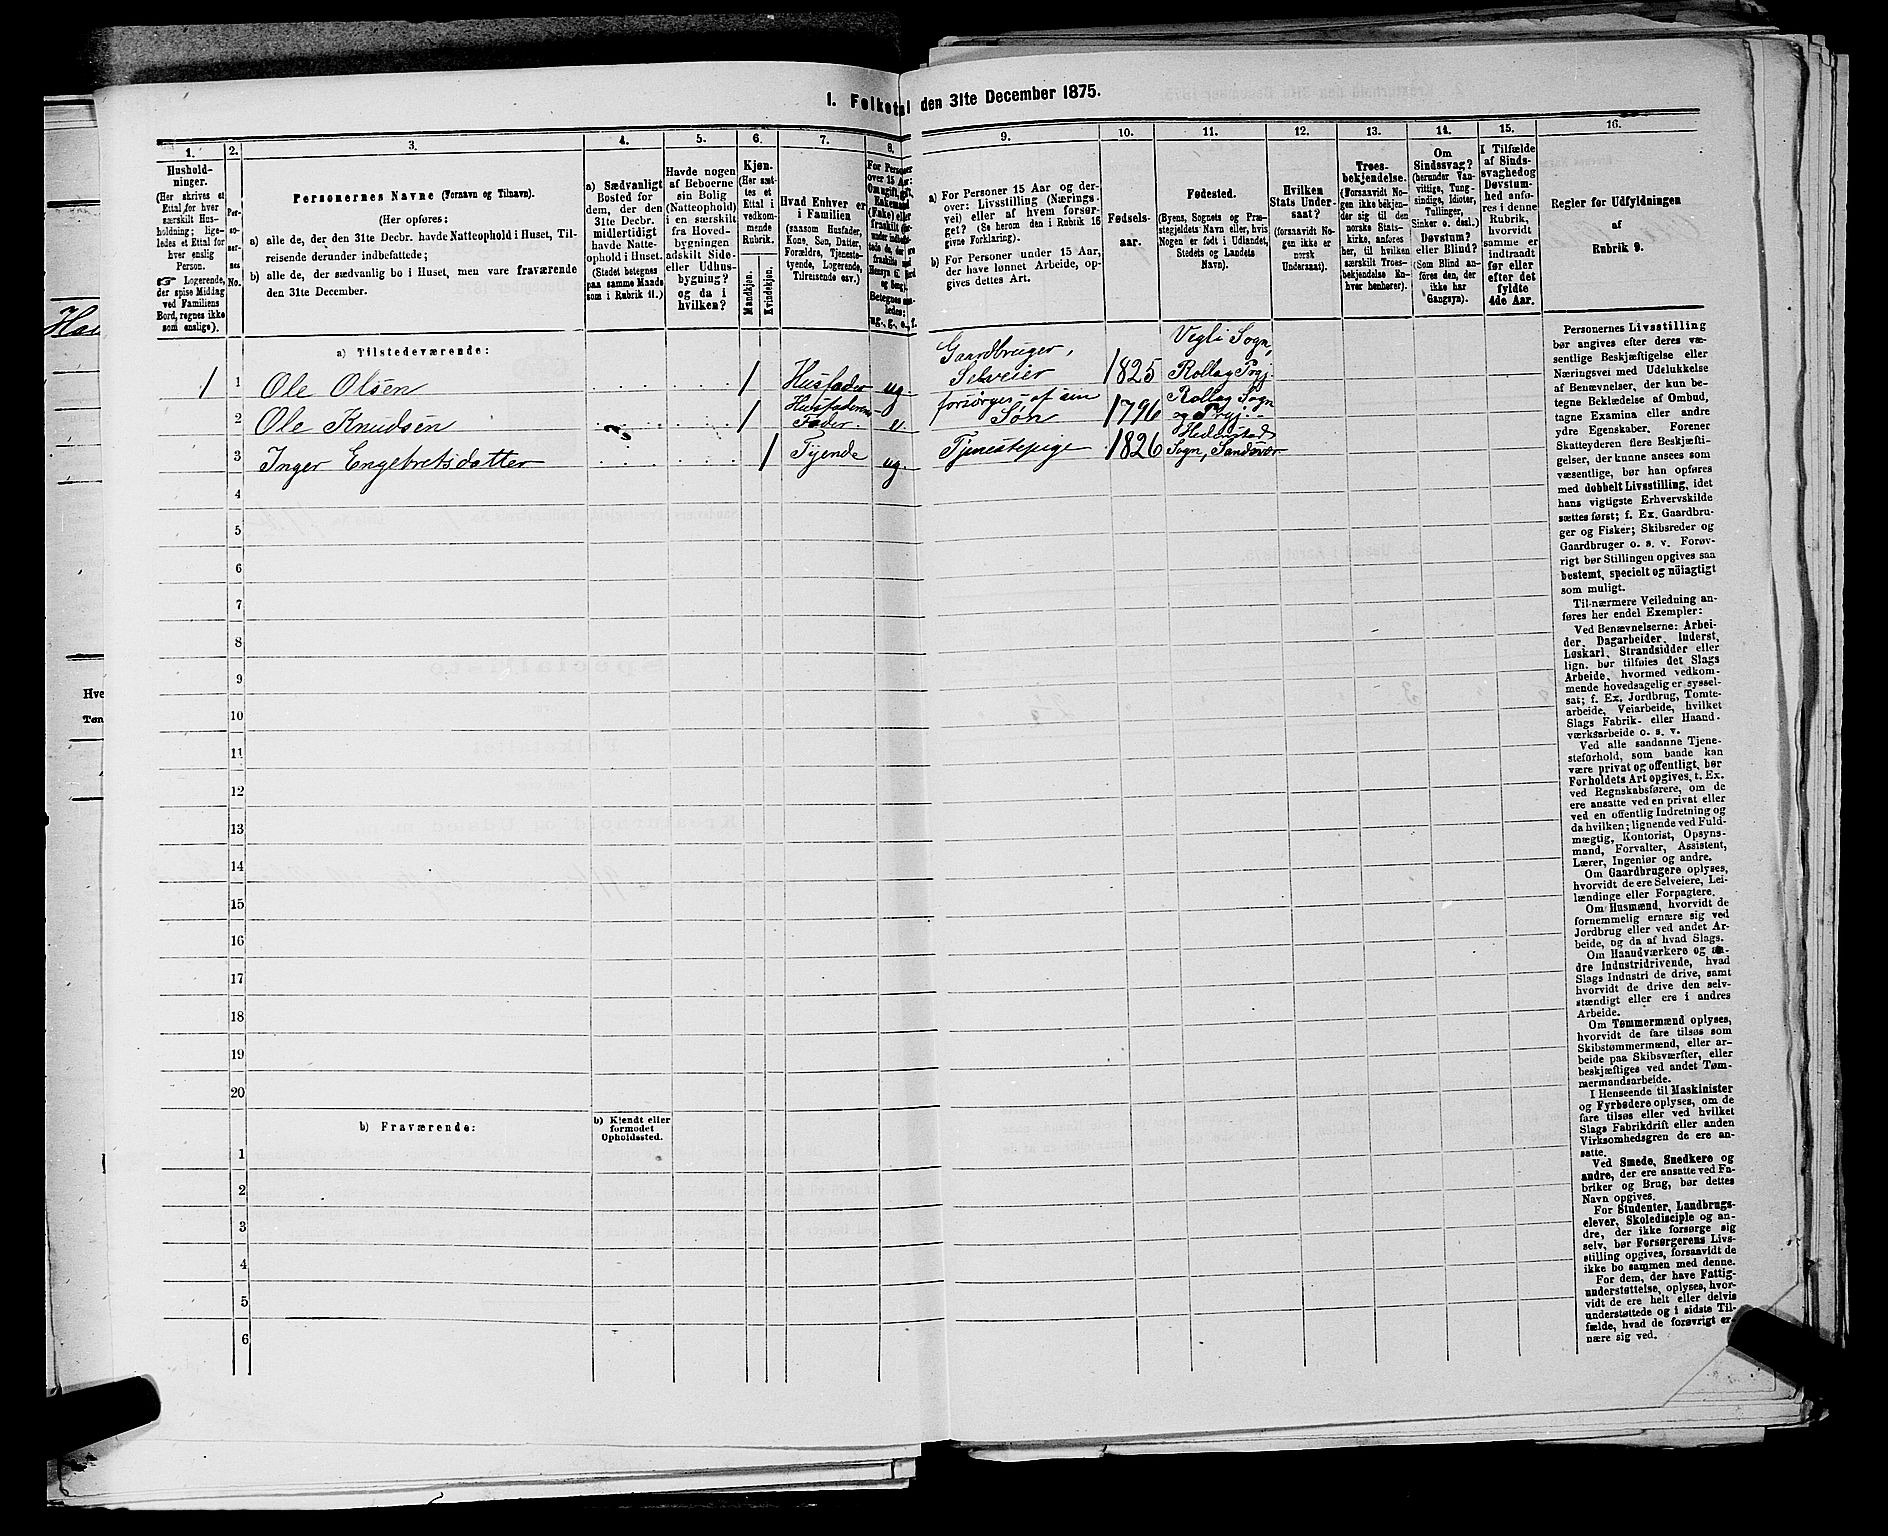 1. Folketal den 31te December 1875.
1.
2.
3.
4.
5.
6.
7.
8.
9.
10.
11.
12.
13.
14.
15.
16.
Hushold-
ninger.
(Her skrives et
Ettal for hver
særskilt Hus-
holdning; lige-
ledes et Ettal for
hver enslig
Person.
☞ Logerende,
der spise Middag
ved Familiens
Bord, regnes ikke
som enslige).
Per-
so-
ner-
nes
No.
Personernes Navne (Fornavn og Tilnavn).
(Her opføres:
a) alle de, der den 31te Decbr. havde Natteophold i Huset, Til-
reisende derunder indbefattede;
b) alle de, der sædvanlig bo i Huset, men vare fraværende
den 31te December.
a) Sædvanligt
Bosted for
dem, der den
31te Decbr.
midlertidigt
havde Natte-
ophold i Huset.
(Stedet betegnes
paa samme Maade
som i Rubrik 11.)
Havde nogen
af Beboerne
sin Bolig
(Natteophold)
i en særskilt
fra Hoved-
bygningen
adskilt Side-
eller Udhus-
bygning?
og da i
hvilken?
Kjøn.
(Her sæt-
tes et
Ettal i
vedkom-
mende
Rubrik.
Mandkjøn.
Kvindekjøn.
Hvad Enhver er
i Familien
(saasom Husfader,
Kone, Søn, Datter,
Forældre, Tjeneste-
tyende, Logerende,
Tilreisende osv.)
For Personer
over 15 Aar:
Om ugift, gift,
Enkemand
(Enke) eller
fraskilt
Betegnes saa-
ledes:
ug., g., e., f.
a) For Personer 15 Aar og der-
over: Livsstilling (Nærings-
vei) eller af hvem forsør-
get? (Se herom den i Rubrik 16
givne Forklaring).
b) For Personer under 15 Aar,
der have lønnet Arbeide, op-
gives dettes Art.
Fødsels-
aar.
Fødested.
(Byens, Sognets og Præ-
stegjeldets Navn eller, hvis
Nogen er født i Udlandet,
Stedets og Landets
Navn).
Hvilken
Stats Under-
saat?
(forsaavidt No-
gen ikke er
norsk
Undersaat).
Troes-
bekjendelse.
(Forsaavidt No-
gen ikke bekjen-
der sig til den
norske Stats-
kirke, anføres
her til hvilken
særskilt Troes-
bekjendelse En-
hver henhører).
Om
Sindssvag?
(herunder Van-
vittige, Tung-
sindige, Idioter,
Tullinger,
Sinker o. desl.)
Døvstum?
eller Blind?
(Som Blind an-
føres den, der
ikke har
Gangsyn).
I Tilfælde
af Sinds-
svaghed og
Døvstum-
hed anfø-
res i denne
Rubrik,
hvorvidt
samme er
indtraadt
før eller
efter det
fyldte
4de Aar.
Regler for Udfyldningen
af
Rubrik 9.
a) Tilstedeværende:
1 1 Ole Olsen 1 Husfader ug. Gaardbruger, Selveier 1825 Vegli Sogn, Rollag Prgj.
2 Ole Knudsen 1 Husfaderens Fader. e. forsörges af sin Sön 1796 Rollag Sogn og Prgj.
3 Inger Engebretsdatter 1 Tyende ug. Tjenestepige 1826 Hedenstad Sogn, Sandsvær
4
5
6
7
8
9
10
11
12
13
14
15
16
17
18
19
20
b) Fraværende:
b) Kjendt eller
formodet
Opholdssted.
1
2
3
4
5
6
Personernes Livsstilling
bør angives efter deres væ-
sentlige Beskjæftigelse eller
Næringsvei med Udelukkelse
af Benævnelser, der kun be-
tegne Beklædelse af Ombud,
tagne Examina eller andre
ydre Egenskaber. Forener
Skatteyderen flere Beskjæfti-
gelser, der kunne ansees som
væsentlige, bør han opføres
med dobbelt Livsstilling, idet
hans vigtigste Erhvervskilde
sættes først; f. Ex. Gaardbru-
ger og Fisker; Skibsreder og
Gaardbruger o. s. v. Forøv-
rigt bør Stillingen opgives saa
bestemt, specielt og nöiagtigt
som muligt.
Til nærmere Veiledning an-
føres her endel Exempler:
Ved Benævnelserne: Arbei-
der, Dagarbeider, Inderst,
Løskarl, Strandsidder eller
lign. bør tilføies det Slags
Arbeide, hvormed vedkom-
mende hovedsagelig er syssel-
sat; f. Ex. Jordbrug, Tomte-
arbeide, Veiarbeide, hvilket
Slags Fabrik- eller Haand-
værksarbeide o. s. v.
Ved alle saadanne Tjene-
steforhold, som baade kan
være privat og offentligt, bør
Forholdets Art opgives, t. Ex.
ved Regnskabsførere, om de
ere ansatte ved en privat eller
ved en offentlig Indretning og
da hvilken; lignende ved Fuld-
mægtig, Kontorist, Opsyns-
mand, Forvalter, Assistent,
Lærer, Ingeniør og andre.
Om Gaardbrugere oplyses,
hvorvidt de ere Selveiere, Lei-
lændinge eller Forpagtere.
Om Husmænd, hvorvidt de
fornemmelig ernære sig ved
Jordbrug eller ved andet Ar-
beide, og da af hvad Slags.
Om Haandværkere og an-
dre Industridrivende, hvad
Slags Industri de drive, samt
hvorvidt de drive den selv-
stændigt eller ere i andres
Arbeide.
Om Tømmermænd oplyses,
hvorvidt de fare tilsøs som
Skibstømmermænd, eller ar-
beide paa Skibsværfter, eller
beskjæftiges ved andet Tøm-
mermandsarbeide.
I Henseende til Maskinister
og Fyrbødere oplyses, om de
fare tilsøs eller ved hvilket
Slags Fabrikdrift eller anden
Virksomhedsgren de ere an-
satte.
Ved Smede, Snedkere og
andre, der ere ansatte ved Fa-
briker og Brug, bør dettes
Navn opgives.
For Studenter, Landbrugs-
elever, Skoledisciple og an-
dre, der ikke forsørge sig
selv, bør Forsørgerens Livs-
stilling opgives, forsaavidt de
ikke bo sammen med denne.
For dem, der have Fattig-
understøttelse, oplyses, hvor-
vidt de ere helt eller delvis
understøttede og i sidste Til-
fælde, hvad de forøvrigt er-
nære sig ved.
Hve
Tøn